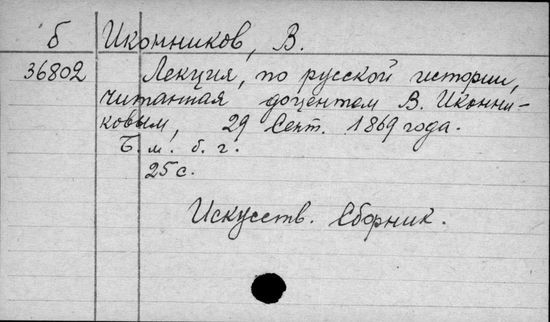 б Иконников, В.
36802 Лекция, по русской истории,
читанная доцентом В. Иконни-
ковым, 29 Сент. 1869 года.
Б. м. б. г.
25 с.
Искусств. Сборник.